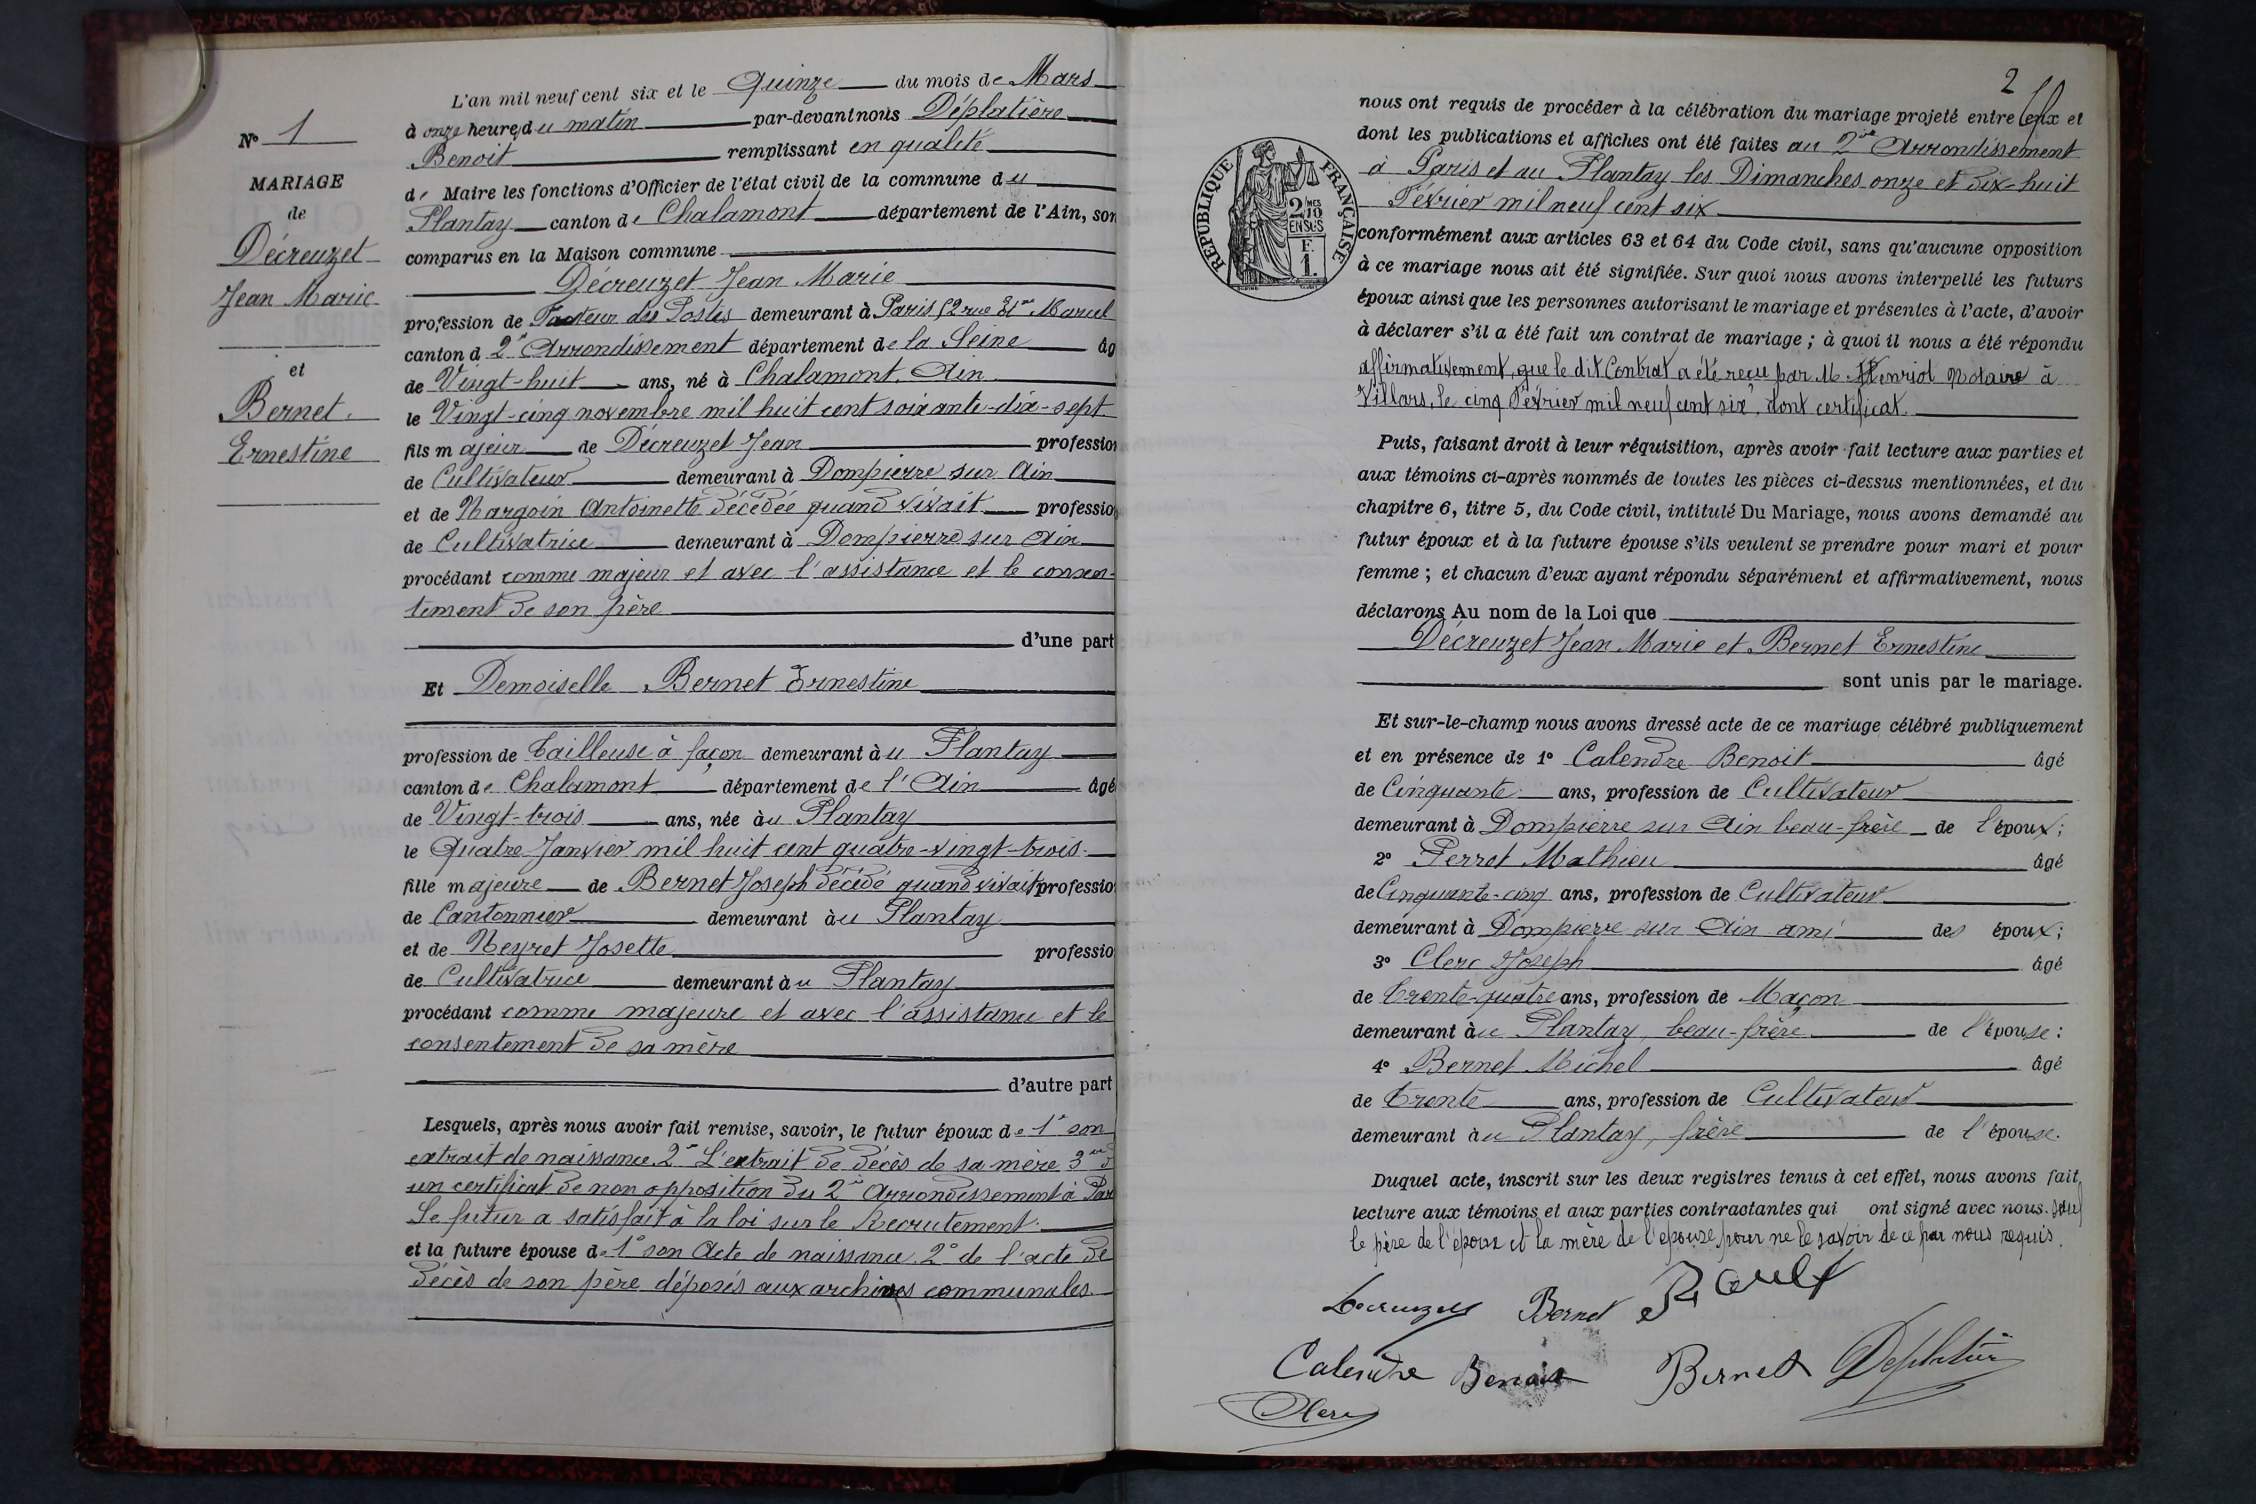 N° 1
MARIAGE
de
Décreuzet
Jean Marie
et
Bernet
Ernestine
L'an mil neuf cent six et le Quinze du mois de Mars
à onze heures du matin par-devant nous Déplatière
Benoit remplissant en qualité
de Maire les fonctions d'Officier de l'état civil de la commune du
Plantay canton de Chalamont département de l'Ain, son
comparus en la Maison commune
Décreuzet Jean Marie
profession de Facteur des Postes demeurant à Paris 52 rue Marcel
canton d 2e Arrondissement département de la Seine âg
de Vingt-huit ans, né à Chalamont, Ain
le Vingt-cinq novembre mil huit cent soixante-dix-sept
fils majeur de Décreuzet Jean profession
de Cultivateur demeurant à Dompierre sur Ain
et de Margoin Antoinette décédée quand vivait profession
de Cultivatrice demeurant à Dompierre sur Ain
procédant comme majeur et avec l'assistance et le consen-
tement de son père
d'une part
Et Demoiselle Bernet Ernestine
profession de Tailleuse à façon demeurant àu Plantay
canton de Chalamont département de l'Ain âgé
de Vingt-trois ans, née àu Plantay
le Quatre Janvier mil huit cent quatre-vingt-trois
fille majeure de Bernet Joseph décédé quand vivait professio
de Cantonnier demeurant àu Plantay
et de Neyret Josette professio
de Cultivatrice demeurant àu Plantay
procédant comme majeure et avec l'assistance et le
consentement de sa mère
d'autre part
Lesquels, après nous avoir fait remise, savoir, le futur époux de 1° son
extrait de naissance 2° L'extrait de décès de sa mère 3°
un certificat de non opposition du 2e Arrondissement à Par
Le futur a satisfait à la loi sur le Recrutement.
et la future épouse de 1° son Acte de naissance 2° de l'acte de
décès de son père déposés aux archives communales.
2
RÉPUBLIQUE FRANÇAISE
2/10 MES
EN SUS
F.
1.
nous ont requis de procéder à la célébration du mariage projeté entre Eux et
dont les publications et affiches ont été faites au 2e Arrondissement
à Paris et au Plantay les Dimanches onze et dix-huit
Février mil neuf cent six
conformément aux articles 63 et 64 du Code civil, sans qu'aucune opposition
à ce mariage nous ait été signifiée. Sur quoi nous avons interpellé les futurs
époux ainsi que les personnes autorisant le mariage et présentes à l'acte, d'avoir
à déclarer s'il a été fait un contrat de mariage ; à quoi il nous a été répondu
affirmativement, que le dit Contrat a été reçu par M. Henriot Notaire à
Villars, le cinq Février mil neuf cent six, dont certificat.
Puis, faisant droit à leur réquisition, après avoir fait lecture aux parties et
aux témoins ci-après nommés de toutes les pièces ci-dessus mentionnées, et du
chapitre 6, titre 5, du Code civil, intitulé Du Mariage, nous avons demandé au
futur époux et à la future épouse s'ils veulent se prendre pour mari et pour
femme ; et chacun d'eux ayant répondu séparément et affirmativement, nous
déclarons Au nom de la Loi que
Décreuzet Jean Marie et Bernet Ernestine
sont unis par le mariage.
Et sur-le-champ nous avons dressé acte de ce mariage célébré publiquement
et en présence de 1° Calendre Benoit âgé
de Cinquante ans, profession de Cultivateur
demeurant à Dompierre sur Ain beau-frère de l'époux ;
2° Perrot Mathieu âgé
de Cinquante-cinq ans, profession de Cultivateur
demeurant à Dompierre sur Ain ami des époux ;
3° Clerc Joseph âgé
de Trente-quatre ans, profession de Maçon
demeurant àu Plantay, beau-frère de l'épouse :
4° Bernet Michel âgé
de Trente ans, profession de Cultivateur
demeurant àu Plantay, frère de l'épouse.
Duquel acte, inscrit sur les deux registres tenus à cet effet, nous avons fait
lecture aux témoins et aux parties contractantes qui ont signé avec nous. sauf
le père de l'époux et la mère de l'épouse, pour ne le savoir de ce par nous requis.
Decreuzet Bernet
Calendre Benoit Bernet Deplatière
Clerc